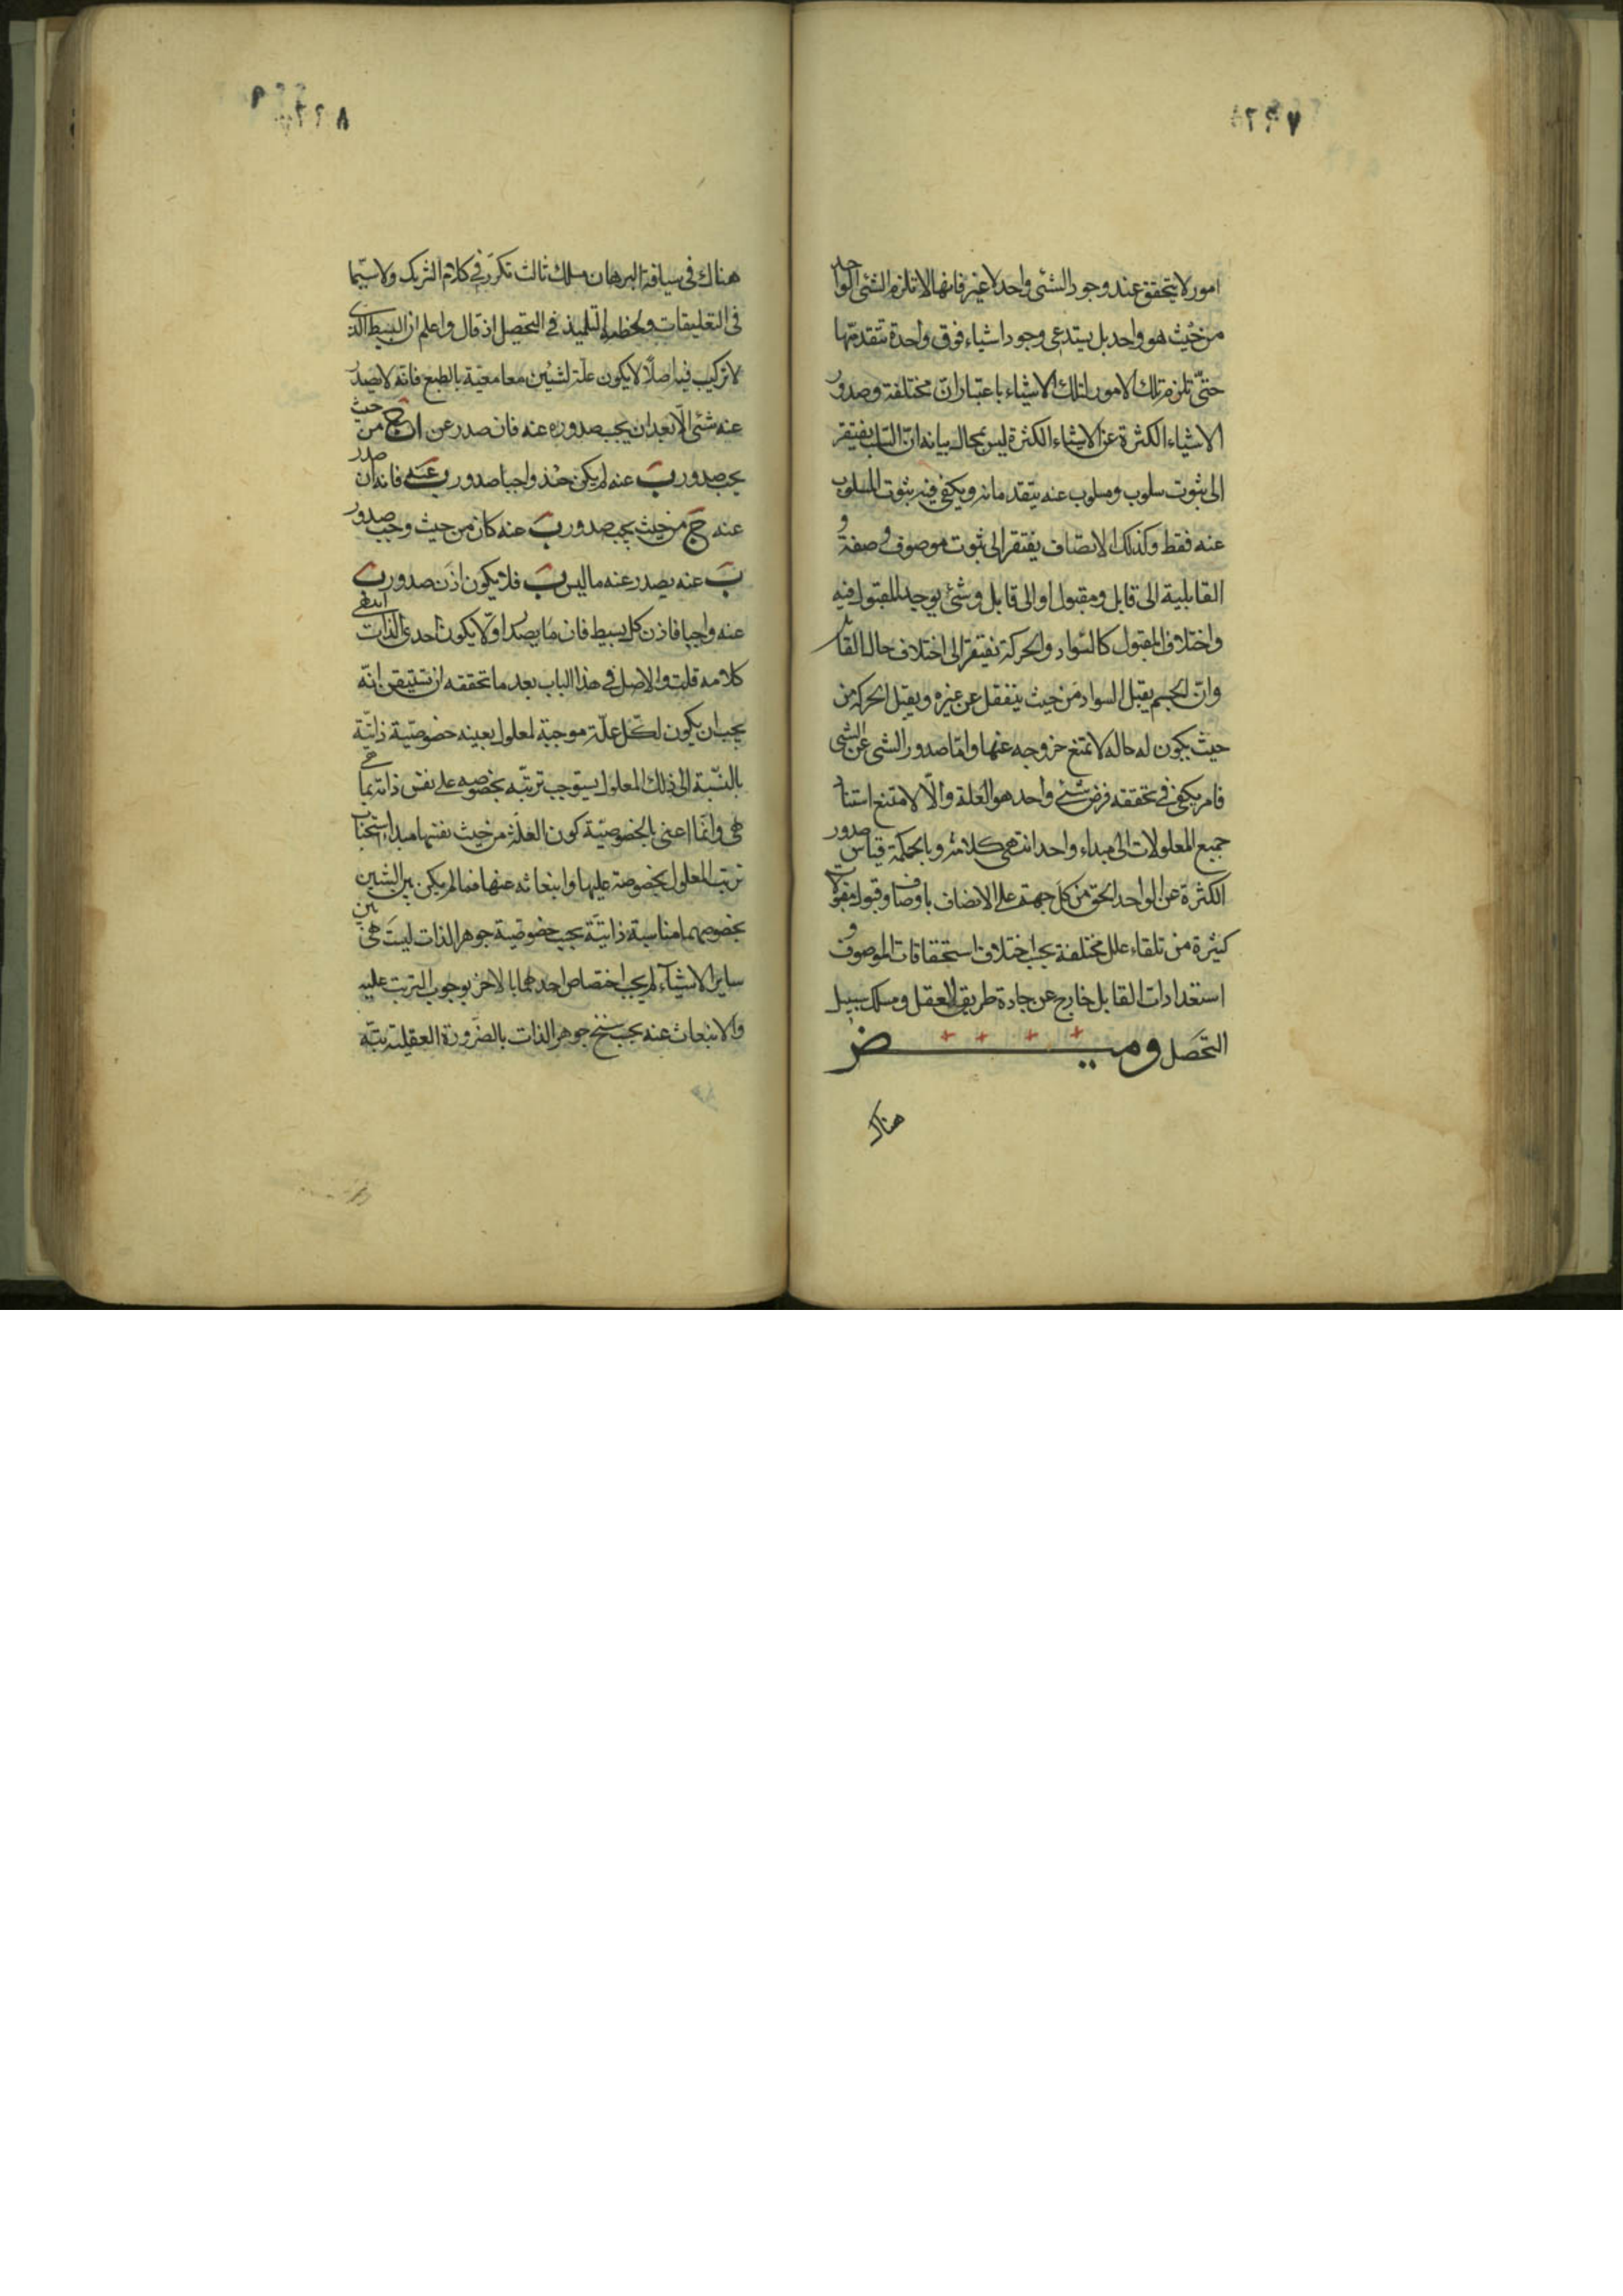 امور لا تتحقق عند وجود الشئ واحد لا غير فانها لا تلزم الشئ الواحد
من حيث هو واحد بل يستدعى وجود اشياء فوق واحدة تتقدمها
حتى تلزم تلك الامور لتلك الاشياء باعتبارات مختلفة وصدور
الاشياء الكثرة عن الاشياء الكثرة ليس بمحال بيانه ان السلب يفتقر
الى ثبوت سلوب ومسلوب عنه يتقدمانه ويكفى فيه ثبوت المسلوب
عنه فقط وكذلك الاتصاف يفتقر الى ثبوت موصوف وصفة و
القابلية الى قابل ومقبول او الى قابل وشئ يوجد المقبول فيه
واختلاف المقبول كالسواد والحركة تفتقر الى اختلاف حال القابل
وان الجسم يقبل السواد من حيث ينفعل عن غيره ويقبل الحركة من
حيث يكون له حال لا تمتنع خروجه عنها واما صدور الشى عن الشى
فامر يكفى فى تحققه فرض شئ واحد هو العلة والا لامتنع استناد
جميع المعلولات الى مبداء واحد انتهى كلامه وبالحكمة قياس صدور
الكثرة عن الواحد الحق من كل جهة على الاتصاف باوصاف وقبول مقبولات
كثيرة من تلقاء علل مختلفة بحسب اختلاف استحقاقات الموصوف و
استعدادات القابل خارج عن جادة طريق العقل ومسلك سبيل
التحصل وميض
هناك
هناك فى سياقة البرهان مسلك ثالث تكرر فى كلام الشريك ولا سيما
فى التعليقات ولخطه التلميذ فى التحصيل اذ قال واعلم ان البسيط الذى
لا تركيب فيه اصلا لا يكون علة لشيئين معا معية بالطبع فانه لا يصدر
عنه شئ الا بعد ان يجب صدوره عنه فان صدر عن ا ج من حيث
يجب صدور ب عنه لم يكن حنذ واجبا صدور ب عنه فانه ان صدر
عنه ج من حيث يجب صدور ب عنه كان من حيث وجب صدور
ب عنه يصدر عنه ما ليس ب فلا يكون اذن صدور ب
عنه واجبا فاذن كل بسيط فان ما يصدر اولا يكون احدى الذات انتهى
كلامه قلت والاصل فى هذا الباب بعد ما تحققه ان تستيقن انه
يجب ان يكون لكل علة موجبة لمعلول بعينه خصوصية ذاتية
بالنسبة الى ذلك المعلول يستوجب ترتبه بخصوصه على نفس ذاته بما هى
هى وانما اعنى بالخصوصية كون العلة من حيث نفسها مبدا استحباب
ترتب المعلول بخصوصه عليها وانبعاثه عنها فما لم يكن بين الشيئين
بخصوصهما مناسبة ذاتية بحسب خصوصية جوهر الذات ليست هى بين
ساير الاشياء لم يجب اختصاص احدهما بالاخر بوجوب الترتب عليه
والانبعاث عنه بحسب سنخ جوهر الذات بالضرورة العقلية بتة